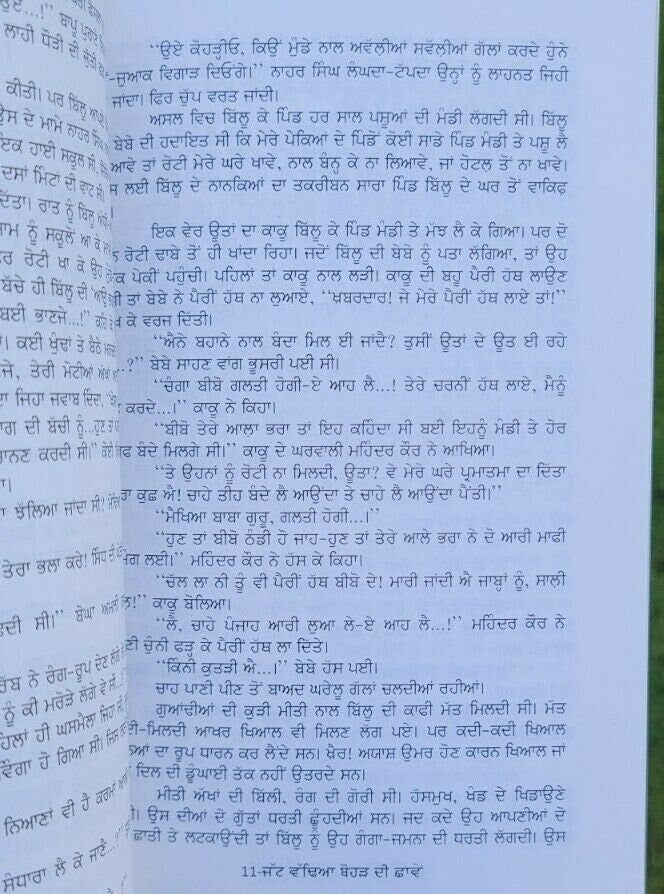 ਓਏ...!'' ਬਾਪੂ
ਲਾਹੀ ਧੋਤੀ ਦੀ ਚੁੱਤੀ
ਕੀਤੀ। ਪਰ ਬਿੱਲੂ
ਉਸ ਦੇ ਮਾਮੇ ਨਾਹਰ ਸਿੰਘ
ਇਕ ਹਾਈ ਸਕੂਲ ਸੀ,
ਦਸਾਂ ਮਿੰਟਾਂ ਦੀ ਵਾਟ ਸੀ
ਦਿੱਤਾ। ਰਾਤ ਨੂੰ ਬਿੱਲੂ
ਨੂੰ ਸਕੂਲੋਂ ਆ ਕੇ
ਰੋਟੀ ਖਾ ਕੇ ਉਹ
ਬੱਚੇ ਹੀ ਬਿੱਲੂ ਦੀ
ਬਈ ਭਾਣਜੇ...!''
ਕਈ ਖੁੰਢਾਂ ਤੇ ਬੈਠੇ
ਤੇਰੀ ਮੋਟੀਆਂ ਅੱਖਾਂ
ਜਿਹਾ ਜਵਾਬ ਦਿੰਦਾ,
ਦੀ ਬੱਚੀ ਨੂੰ...ਹੁਣ
ਚਾਨਣ ਕਰਦੀ ਸੀ।''
ਝੱਲਿਆ ਜਾਂਦਾ ਸੀ?
ਤੇਰਾ ਭਲਾ ਕਰੇ!
ਸੀ।'' ਬੋਘਾ
ਰੱਬ ਨੇ ਰੰਗ-ਰੂਪ ਦੇਣ ਲੱਗੇ
ਨੂੰ ਕੀ ਮਰੋੜੇ ਲੱਗੇ ਵੇ ਸੀ
ਹੀ ਘਸਮੈਲਾ ਜਿਹਾ
ਹੋ ਗਿਆ ਸੀ।
ਨਿਆਣਾਂ ਵੀ ਹੈ ਕਰਮਾਂ
ਸੰਧਾਰਾ ਲੈ ਕੇ ਜਾਣੈ...
''ਉਏ ਕੋਹੜੀਓ, ਕਿਉਂ ਮੁੰਡੇ ਨਾਲ ਅਵੱਲੀਆਂ ਸਵੱਲੀਆਂ ਗੱਲਾਂ ਕਰਦੇ ਹੁੰਨੇ
-ਜੁਆਕ ਵਿਗਾੜ ਦਿਓਂਗੇ।'' ਨਾਹਰ ਸਿੰਘ ਲੰਘਦਾ-ਟੱਪਦਾ ਉਨ੍ਹਾਂ ਨੂੰ ਲਾਹਨਤ ਜਿਹੀ
ਜਾਂਦਾ। ਫਿਰ ਚੁੱਪ ਵਰਤ ਜਾਂਦੀ।
ਅਸਲ ਵਿਚ ਬਿੱਲੂ ਕੇ ਪਿੰਡ ਹਰ ਸਾਲ ਪਸ਼ੂਆਂ ਦੀ ਮੰਡੀ ਲੱਗਦੀ ਸੀ। ਬਿੱਲੂ
ਬੇਬੇ ਦੀ ਹਦਾਇਤ ਸੀ ਕਿ ਮੇਰੇ ਪੇਕਿਆਂ ਦੇ ਪਿੰਡੋਂ ਕੋਈ ਸਾਡੇ ਪਿੰਡ ਮੰਡੀ ਤੇ ਪਸ਼ੂ ਲੈ
ਆਵੇ ਤਾਂ ਰੋਟੀ ਮੇਰੇ ਘਰੇ ਖਾਵੇ, ਨਾਲ ਬੰਨ੍ਹ ਕੇ ਨਾ ਲਿਆਵੇ, ਜਾਂ ਹੋਟਲ ਤੋਂ ਨਾ ਖਾਵੇ।
ਸ ਲਈ ਬਿੱਲੂ ਦੇ ਨਾਨਕਿਆਂ ਦਾ ਤਕਰੀਬਨ ਸਾਰਾ ਪਿੰਡ ਬਿੱਲੂ ਦੇ ਘਰ ਤੋਂ ਵਾਕਿਫ਼
ਇਕ ਵੇਰ ਊਤਾਂ ਦਾ ਕਾਕੂ ਬਿੱਲੂ ਕੇ ਪਿੰਡ ਮੰਡੀ ਤੇ ਮੱਝ ਲੈ ਕੇ ਗਿਆ। ਪਰ ਦੋ
ਰੋਟੀ ਢਾਬੇ ਤੋਂ ਹੀ ਖਾਂਦਾ ਰਿਹਾ। ਜਦੋਂ ਬਿੱਲੂ ਦੀ ਬੇਬੇ ਨੂੰ ਪਤਾ ਲੱਗਿਆ, ਤਾਂ ਉਹ
ਕ ਪੇਕੀਂ ਪਹੁੰਚੀ। ਪਹਿਲਾਂ ਤਾਂ ਕਾਕੂ ਨਾਲ ਲੜੀ। ਕਾਕੂ ਦੀ ਬਹੂ ਪੈਰੀਂ ਹੱਥ ਲਾਉਣ
ਗੀ ਤਾਂ ਬੇਬੇ ਨੇ ਪੈਰੀਂ ਹੱਥ ਨਾ ਲੁਆਏ, ''ਖ਼ਬਰਦਾਰ! ਜੇ ਮੇਰੇ ਪੈਰੀਂ ਹੱਥ ਲਾਏ ਤਾਂ!''
ਖ ਕੇ ਵਰਜ ਦਿੱਤੀ।
''ਐਨੇ ਬਹਾਨੇ ਨਾਲ ਬੰਦਾ ਮਿਲ ਈ ਜਾਂਦੈ? ਤੁਸੀਂ ਊਤਾਂ ਦੇ ਊਤ ਈ ਰਹੇ
..?'' ਬੇਬੇ ਸਾਹਣ ਵਾਂਗ ਭੂਸਰੀ ਪਈ ਸੀ।
''ਚੰਗਾ ਬੀਬੋ ਗਲਤੀ ਹੋਗੀ-ਏ ਆਹ ਲੈ...! ਤੇਰੇ ਚਰਨੀਂ ਹੱਥ ਲਾਏ, ਮੈਨੂੰ
ਕਰਦੇ...।'' ਕਾਕੂ ਨੇ ਕਿਹਾ।
''ਬੀਬੋ ਤੇਰੇ ਆਲਾ ਭਰਾ ਤਾਂ ਇਹ ਕਹਿੰਦਾ ਸੀ ਬਈ ਇਹਨੂੰ ਮੰਡੀ ਤੇ ਹੋਰ
ਫ ਬੰਦੇ ਮਿਲਗੇ ਸੀ।'' ਕਾਕੂ ਦੇ ਘਰਵਾਲੀ ਮਹਿੰਦਰ ਕੌਰ ਨੇ ਆਖਿਆ।
''ਤੇ ਉਹਨਾਂ ਨੂੰ ਰੋਟੀ ਨਾ ਮਿਲਦੀ, ਊਤਾ? ਵੇ ਮੇਰੇ ਘਰੇ ਪ੍ਰਮਾਤਮਾ ਦਾ ਦਿੱਤਾ
ਰਾ ਕੁਛ ਐ! ਚਾਹੇ ਤੀਹ ਬੰਦੇ ਲੈ ਆਉਂਦਾ ਤੇ ਚਾਹੇ ਲੈ ਆਉਂਦਾ ਪੈਂਤੀ।''
''ਮੈਖਿਆ ਬਾਬਾ ਗੁਰੂ, ਗਲਤੀ ਹੋਗੀ...।''
''ਹੁਣ ਤਾਂ ਬੀਬੋ ਠੰਡੀ ਹੋ ਜਾਹ-ਹੁਣ ਤਾਂ ਤੇਰੇ ਆਲੇ ਭਰਾ ਨੇ ਦੋ ਆਰੀ ਮਾਫੀ
ਗ ਲਈ।'' ਮਹਿੰਦਰ ਕੌਰ ਨੇ ਹੱਸ ਕੇ ਕਿਹਾ।
''ਚੱਲ ਲਾ ਨੀ ਤੂੰ ਵੀ ਪੈਰੀਂ ਹੱਥ ਬੀਬੋ ਦੇ! ਮਾਰੀ ਜਾਂਦੀ ਐ ਜਾਬ੍ਹਾਂ ਨੂੰ, ਸਾਲੀ
!'' ਕਾਕੂ ਬੋਲਿਆ।
''ਲੈ, ਚਾਹੇ ਪੰਜਾਹ ਆਰੀ ਲੁਆ ਲੇ-ਏ ਆਹ ਲੈ...!'' ਮਹਿੰਦਰ ਕੌਰ ਨੇ
ਣੀ ਚੁੰਨੀ ਫੜ੍ਹ ਕੇ ਪੈਰੀਂ ਹੱਥ ਲਾ ਦਿੱਤੇ।
''ਕਿੰਨੀ ਕੁਤੜੀ ਐ...।'' ਬੇਬੇ ਹੱਸ ਪਈ।
ਚਾਹ ਪਾਣੀ ਪੀਣ ਤੋਂ ਬਾਅਦ ਘਰੇਲੂ ਗੱਲਾਂ ਚਲਦੀਆਂ ਰਹੀਆਂ।
ਗੁਆਂਢੀਆਂ ਦੀ ਕੁੜੀ ਮੀਤੀ ਨਾਲ ਬਿੱਲੂ ਦੀ ਕਾਫੀ ਮੱਤ ਮਿਲਦੀ ਸੀ। ਮੱਤ
ਤੀ-ਮਿਲਦੀ ਆਖਰ ਖਿਆਲ ਵੀ ਮਿਲਣ ਲੱਗ ਪਏ। ਪਰ ਕਦੀ-ਕਦੀ ਖਿਆਲ
ਆਂ ਦਾ ਰੂਪ ਧਾਰਨ ਕਰ ਲੈਂਦੇ ਸਨ। ਖੈਰ! ਅਯਾਸ਼ ਉਮਰ ਹੋਣ ਕਾਰਨ ਖਿਆਲ ਜਾਂ
ਦਿਲ ਦੀ ਡੂੰਘਾਈ ਤੱਕ ਨਹੀਂ ਉਤਰਦੇ ਸਨ।
ਮੀਤੀ ਅੱਖਾਂ ਦੀ ਬਿੱਲੀ, ਰੰਗ ਦੀ ਗੋਰੀ ਸੀ। ਹਸਮੁਖ, ਖੰਡ ਦੇ ਖਿਡਾਉਣੇ
ਉਸ ਦੀਆਂ ਦੋ ਗੁੱਤਾਂ ਧਰਤੀ ਛੂੰਹਦੀਆਂ ਸਨ। ਜਦ ਕਦੇ ਉਹ ਆਪਣੀਆਂ ਦੋ
ਛਾਤੀ ਤੇ ਲਟਕਾਉਂਦੀ ਤਾਂ ਬਿੱਲੂ ਨੂੰ ਉਹ ਗੰਗਾ-ਜਮਨਾ ਦੀ ਧਰਤੀ ਲੱਗਦੀ। ਉਸ
11-ਜੱਟ ਵੱਢਿਆ ਬੋਹੜ ਦੀ ਛਾਵੇਂ